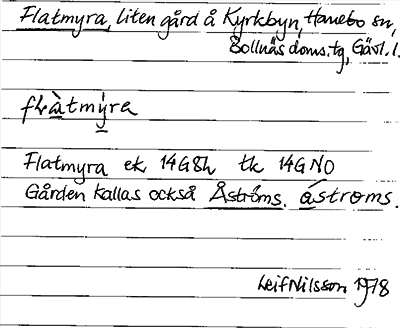 Flatmyra, liten gård å Kyrkbyn, Hanebo sn,
Bollnäs doms.tg, Gävl. l.
flàtmy̠ra
Flatmyra ek 14G8h tk 14GNO
Gården kallas också Åströms. ástroms.
Leif Nilsson 1978